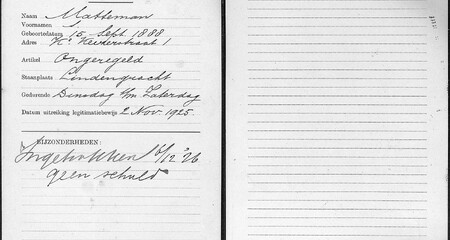 Naam Matteman
Voornamen J.
Geboortedatum 15 Sept 1888
Adres Kl. Heerenstraat 1
Artikel Ongeregeld
Staanplaats Lindengracht
Gedurende Dinsdag t/m Zaterdag
Datum uitreiking legitimatiebewijs 2 Nov. 1925.
BIJZONDERHEDEN:
Ingetrokken /12 '26
geen schuld